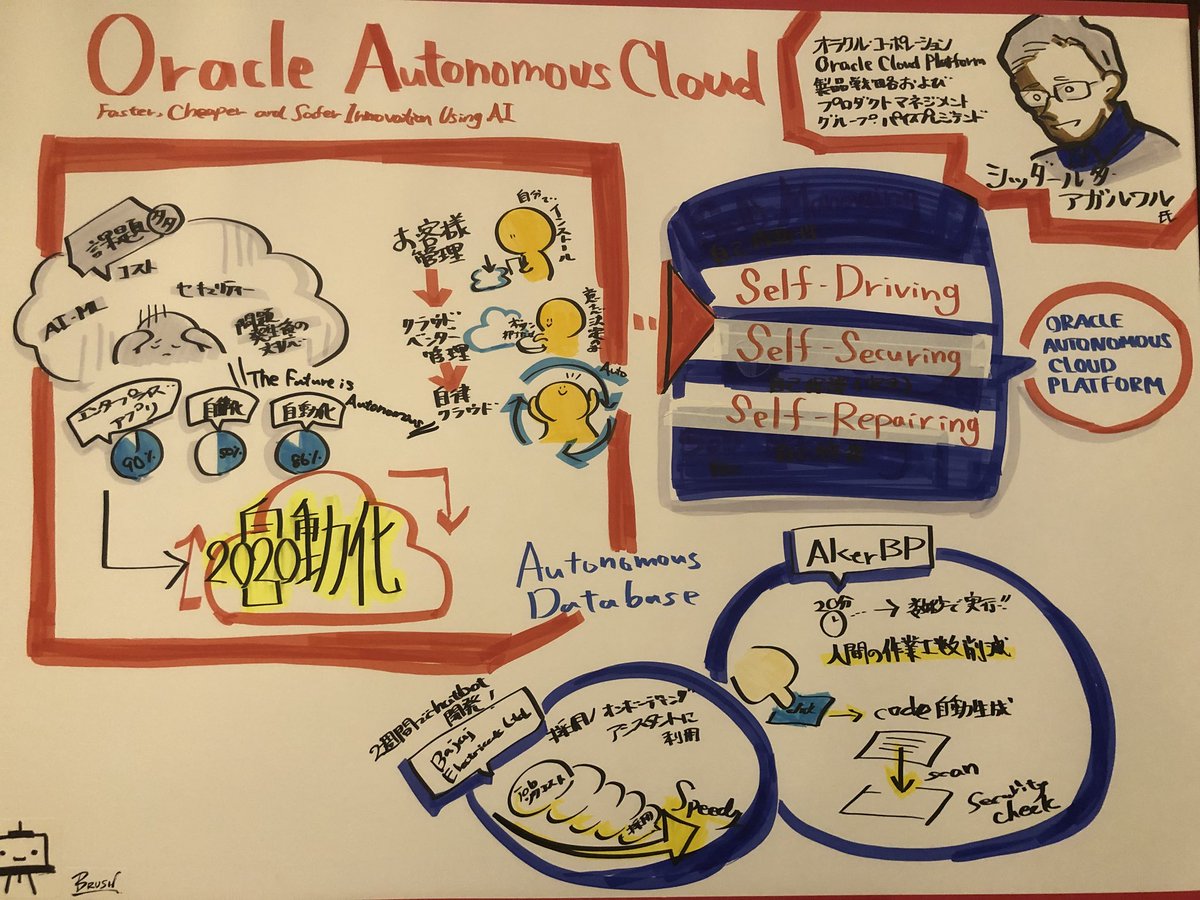 Oracle Autonomous Cloud
Faster, Cheaper and Safer Innovation Using AI
オラクル・コーポレーション
Oracle Cloud Platform
製品戦略および
プロダクトマネジメント
グループ・バイスプレジデント
シッダールタ・
アガルワル
氏
課題
多
コスト
セキュリティー
AI・ML
問題
発生後の
The Future is
Autonomous
エンタープライズ
アプリ
自動化
90%
50%
86%
2020
自動化
お客様
管理
クラウド
ベンダー
管理
自律
クラウド
自分で
インストール
意思決定
Auto
Self-Driving
Self-Securing
Self-Repairing
ORACLE
AUTONOMOUS
CLOUD
PLATFORM
Autonomous
Database
AkerBP
20分
→ 数秒で実行!!
人間の作業工数削減
code自動生成
scan
Security
check
2週間でchatbot
開発!
Bajaj
Electricals Ltd
採用/オンボーディング
アシスタントに
利用
job
採用
Speedy
BRUSH